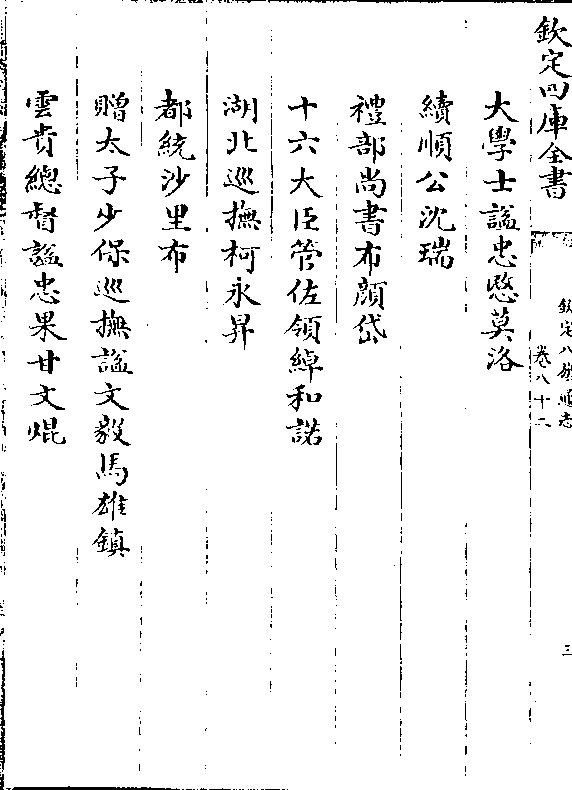 欽定四庫全書
欽定八旗通志
卷八十二
三
大學士諡忠愍莫洛
續順公沈瑞
禮部尚書布顔岱
十六大臣管佐領綽和諾
湖北巡撫柯永昇
都統沙里布
贈太子少保巡撫諡文毅馬雄鎮
雲貴總督諡忠果甘文焜